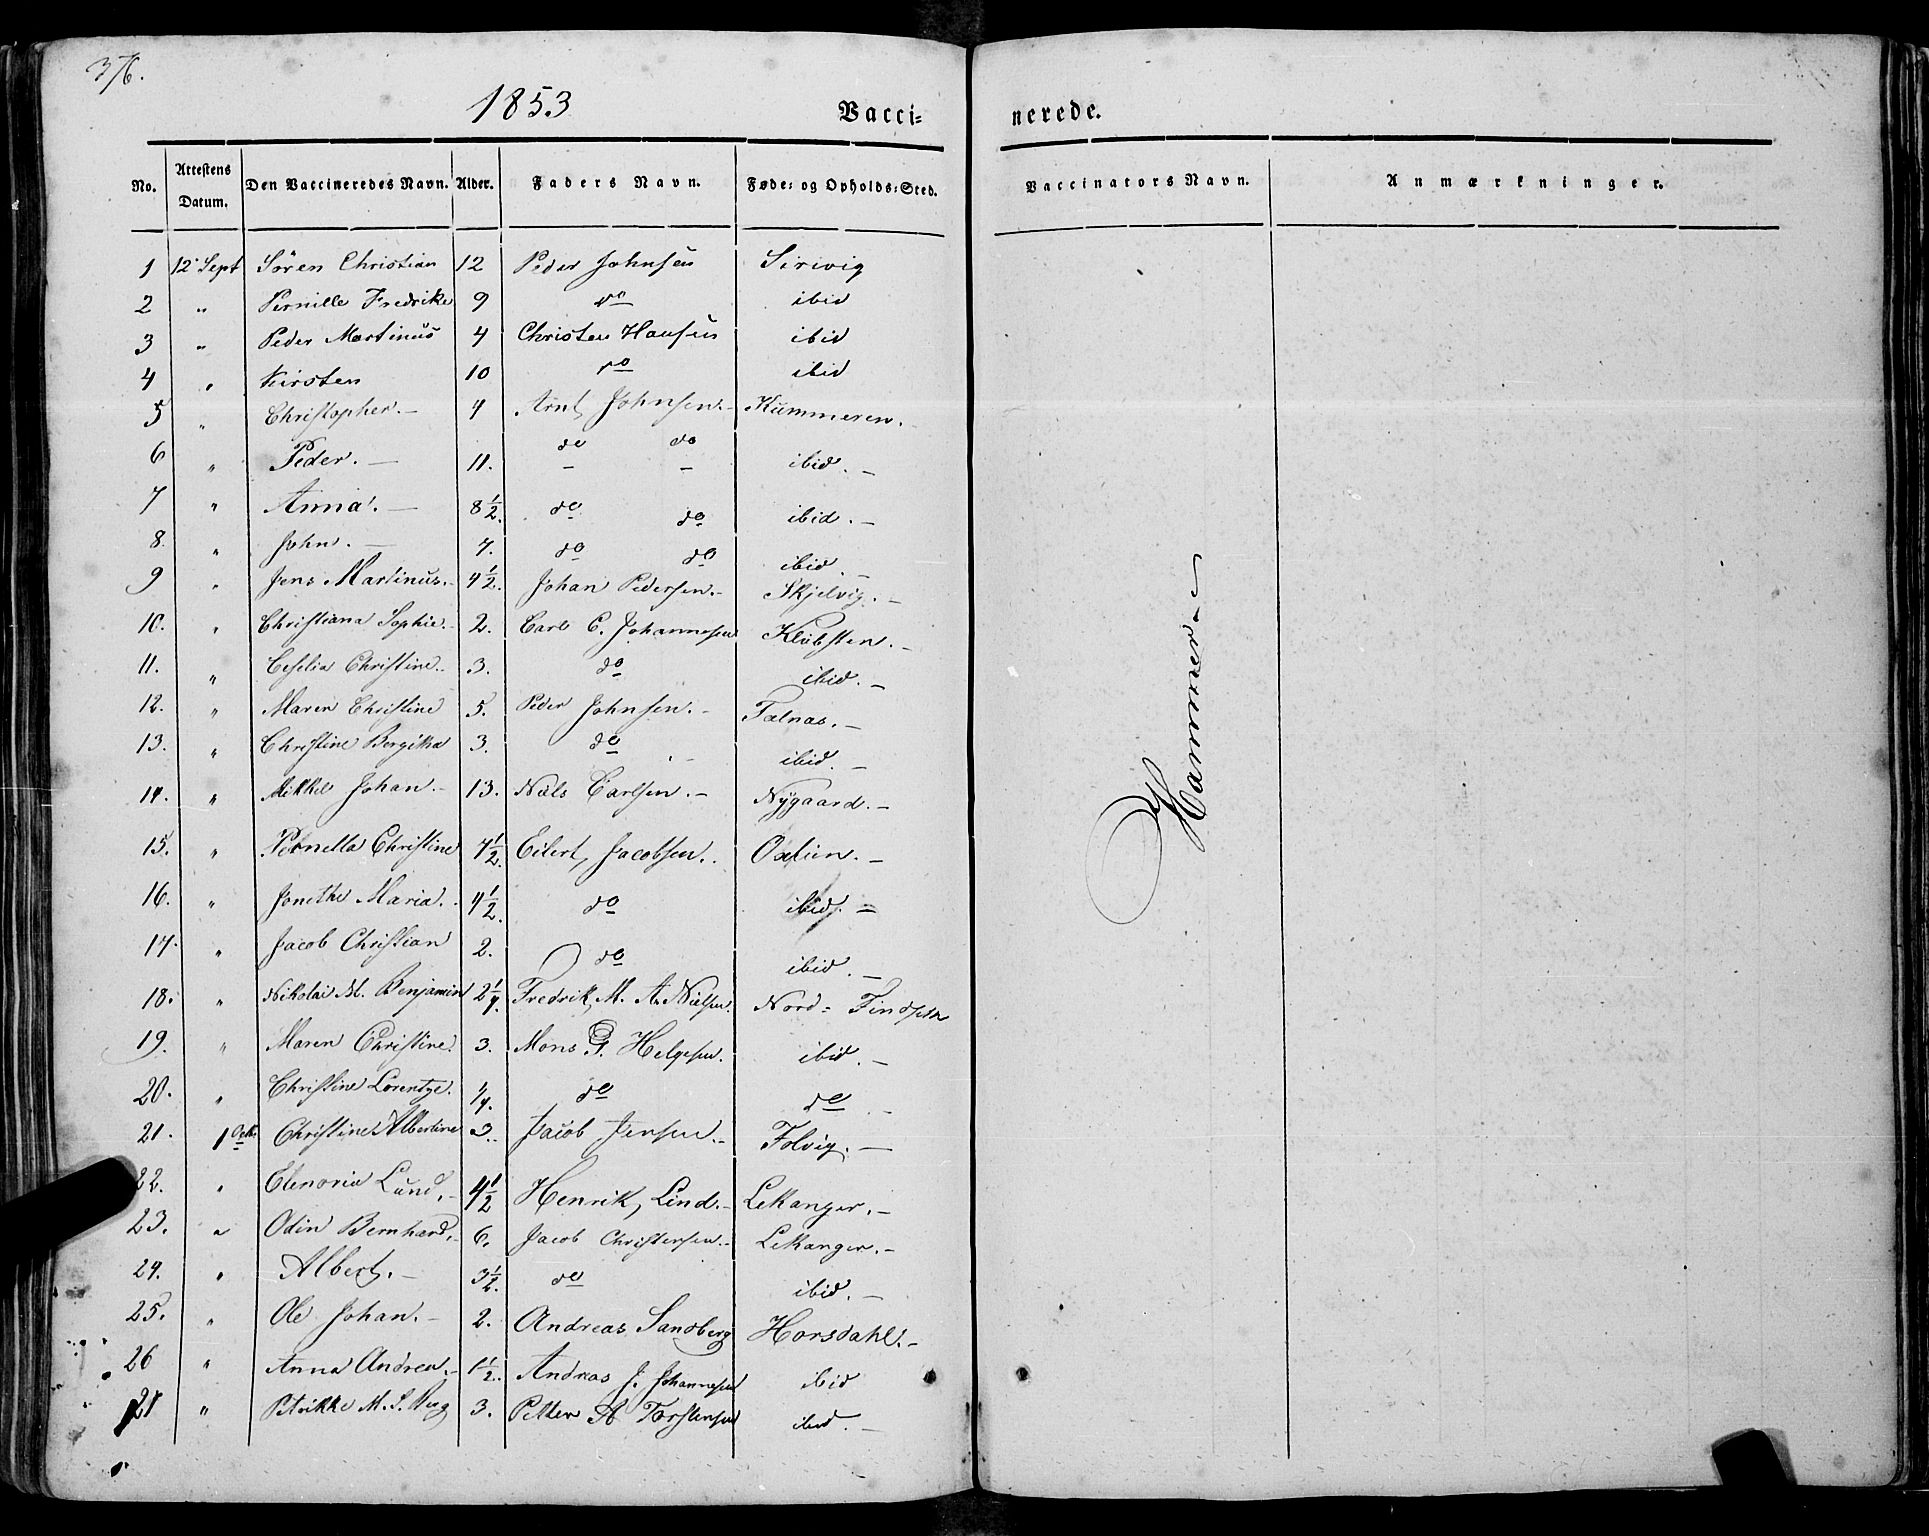 376.
1853
Vacci=
nerede.
No. Attestens Datum. Den Vaccineredes Navn. Alder. Faders Navn. Føde= og Opholds=Sted. Vaccinators Navn. Anmærkninger.
1 12 Sept Sören Christian 12 Peder Johnsen Sirivig
2 " Pernille Fredrike 9 do ibid
3 " Peder Martinus 4 Christen Hansen ibid
4 " Kirsten 10 do ibid
5 " Christopher. — 4 Arnt Johnsen. — Kummeren.
6 " Peder. — 11. do do ibid. —
7 " Anna. — 8 1/2. do do ibid. —
8. " John. — 4. do do ibid. —
9 " Jens Martinus. — 4 1/2. Johan Pedersen. — Skjelvig. —
10. " Christiana Sophie. — 2. Carl C. Johannesen Klubsten. —
11. " Cesilia Christine. 3. do ibid. —
12. " Maren Christine 5. Peder Johnsen. — Talnas. —
13. " Christine Bergitha 3. do ibid. —
14. " Mikkel Johan. — 13. Nils Carlsen. — Nygaard. —
15. " Pernella Christine 4 1/2. Eilert Jacobsen. Oxlien. —
16. " Jonethe Maria. 4 1/2. do ibid. —
17. " Jacob Christian 2. do ibid. —
18. " Nikolai M. Benjamin 2 1/4. Fredrik M. A. Nielsen. Nord= Findset
19. " Maren Christine. 3. Mons G. Helgesen. ibid. —
20. " Christine Lorentze. 1/4. do do —
21. 1 Octb. Christine Albertine 3. Jacob Jensen. — Folvig. —
22. " Elenoria Lund. — 4 1/2 Henrik Lind. — Lekanger. —
23. " Odin Bernhard. — 6. Jacob Christensen. — Lekanger. —
24. " Albert. — 3 1/2. do ibid. —
25. " Ole Johan. — 2. Andreas Sandberg Horsdahl. —
26 " Anna Andrea. — 1 1/2. Andreas J. Johannesen ibid
27 " Petrikke M. S. Berg 3. Petter A Torstensen ibid. —
Hammer.